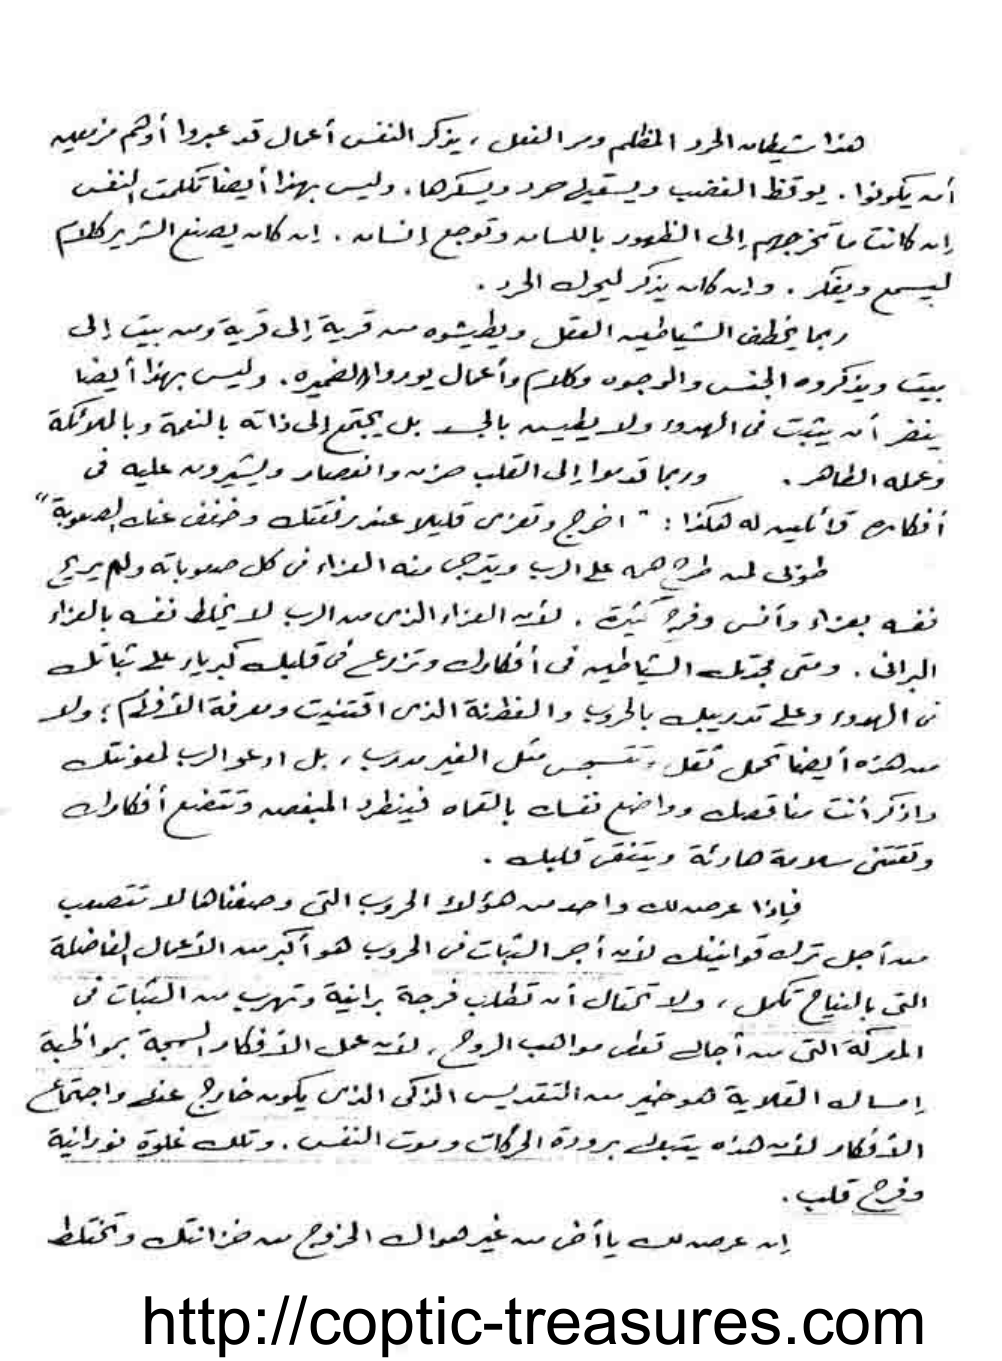 هذا شيطان الحرد المظلم ومر الفعل ، يذكر النفس أعمال قد عبروا أوهم مزمعين
أن يكونوا . يوقظ الغضب ويستقبل حرد ويسكرها . وليس بهذا أيضا تكلمت النفس
إن كانت ما تخرجهم إلى الظهور باللسان وتوجع إنسان . إن كان يصنع الشرير كلام
ليسمع ويفكر . وإن كان يذكر ليحرك الحرد .
ربما يخطف الشياطين العقل ويطيشوه من قرية إلى قرية ومن بيت إلى
بيت ويذكروه الجنس والوجوه وكلام وأعمال يوردوا لضميره . وليس بهذا أيضا
ينضر أن يثبت فى الهدوء ولا يطيش بالجسد بل يجتمع إلى ذاته بالنعمة وبالملائكة
وعمله الظاهر . وربما قدموا إلى القلب حزن وانعصار ويشيرون عليه فى
أفكاره قائلين له هكذا : " اخرج وتعزى قليلا عند رفقتك وخفف عنك الصعوبة "
طوبى لمن طرح همه على الرب ويترجى منه العزاء فى كل صعوباته ولم يريح
نفسه بعزاء وأنس وفرح كثيرة . لأن العزاء الذى من الرب لا يخلط نفسه بالعزاء
البرانى . ومتى مجدتك الشياطين فى أفكارك وتزرع فى قلبك كبرياء على ثباتك
فى الهدوء وعلى تدريبك بالحروب والفطنة الذى اقتنيت ومعرفة الأفراز ؛ ولا
من هذه أيضا تحمل ثقل وتتسجس مثل الغير مدرب ، بل ادعو الرب لمعونتك
واذكر أنت مناقصك وواضع نفسك بالتمام فينطرد المبغض وتتضع أفكارك
وتقتنى سلامة هادئة ويتنقى قلبك .
فإذا عرض لك واحد من هؤلاء الحروب التى وصفناها لا تتصعب
من أجل ترك قوانينك لأن أجر الثبات فى الحروب هو أكبر من الأعمال الفاضلة
التى بالنياح تكمل ، ولا تحتال أن تطلب فرجة برانية وتهرب من الثبات فى
المعركة التى من أجلها تعطى مواهب الروح ، لأن عمل الأفكار السمجة بمواظبة
إمساك القلاية هو خير من التقديس الزكى الذى يكون خارج عنها واجتماع
الأفكار لأن هذه يتبعها برودة الحركات وموت النفس . وتلك غلوة نورانية
وفرح قلب .
إن عرض لك يا أخى من غير هواك الخروج من خزانتك وتختلط
http://coptic-treasures.com